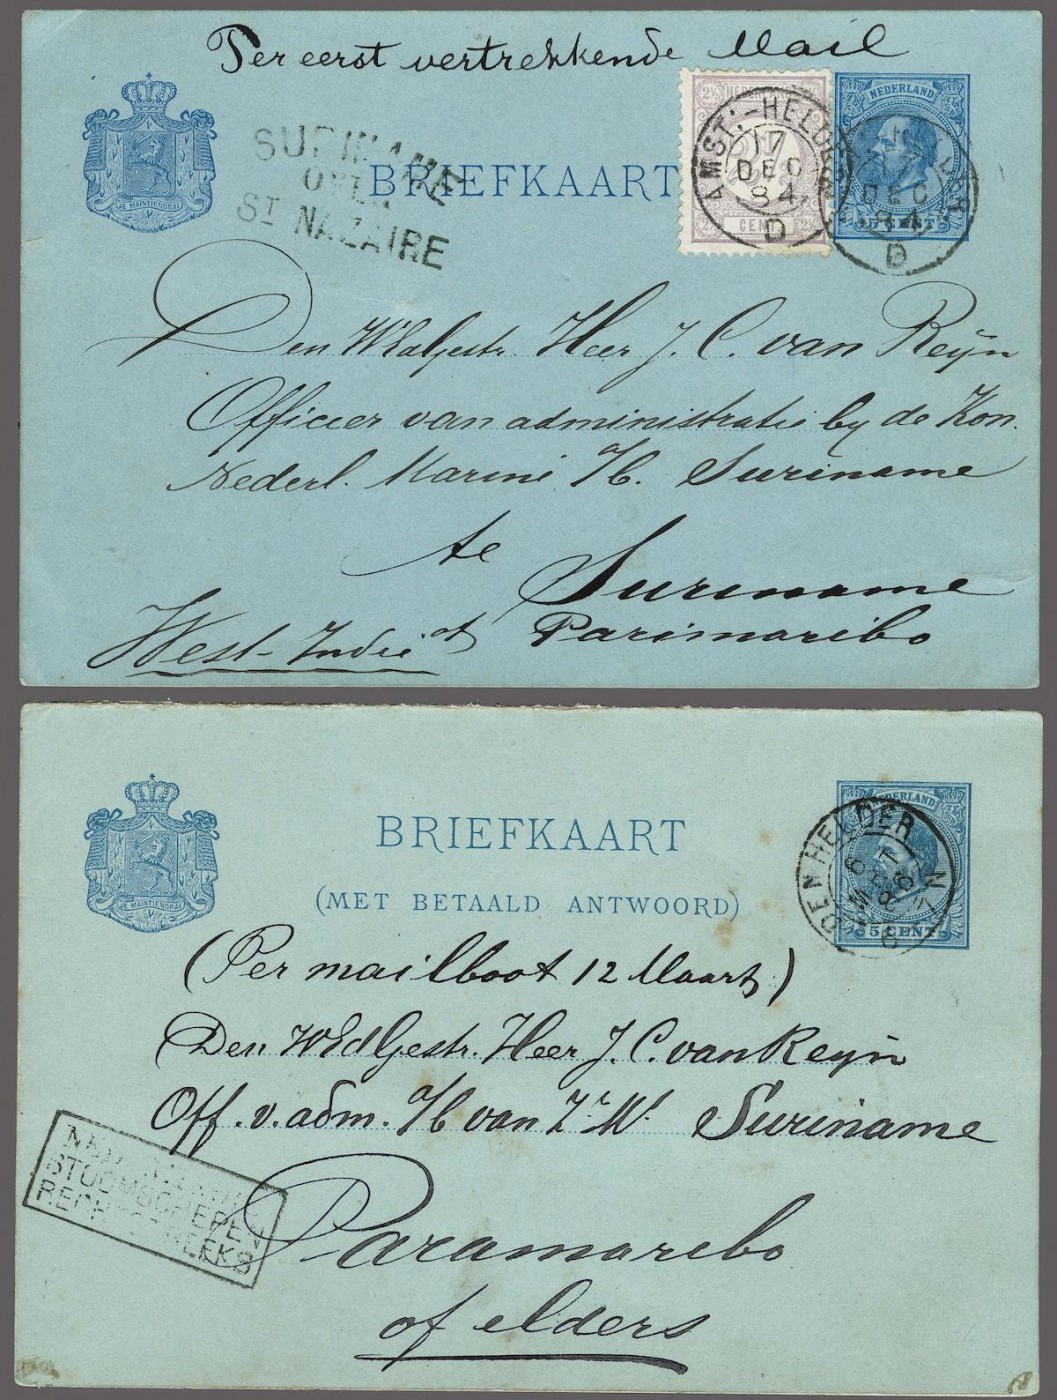 Per eerst vertrekkende Mail
JE MAINTIENDRAI
SURINAME
OVER
ST NAZAIRE
BRIEFKAART
2½ NEDERLAND 2½
2½ CENT 2½
AMST:-HELDER
17
DEC
84
D
NEDERLAND
5 CENT
17
DEC
84
D
Den WEdGestr. Heer J. C. van Reijn
Officier van administratie by de Kon.
Nederl. Marine H. Suriname
te Suriname
West-Indie of Parimaribo
JE MAINTIENDRAI
BRIEFKAART
(MET BETAALD ANTWOORD)
NEDERLAND
5 CENT
DEN HELDER
(Per mailboot 12 Maart)
Den WEdGestr. Heer J. C. van Reijn
Off. v. adm. H van Zr Ms Suriname
STOOMSCHEPEN
RECHTSTREEKS
Paramaribo
of elders